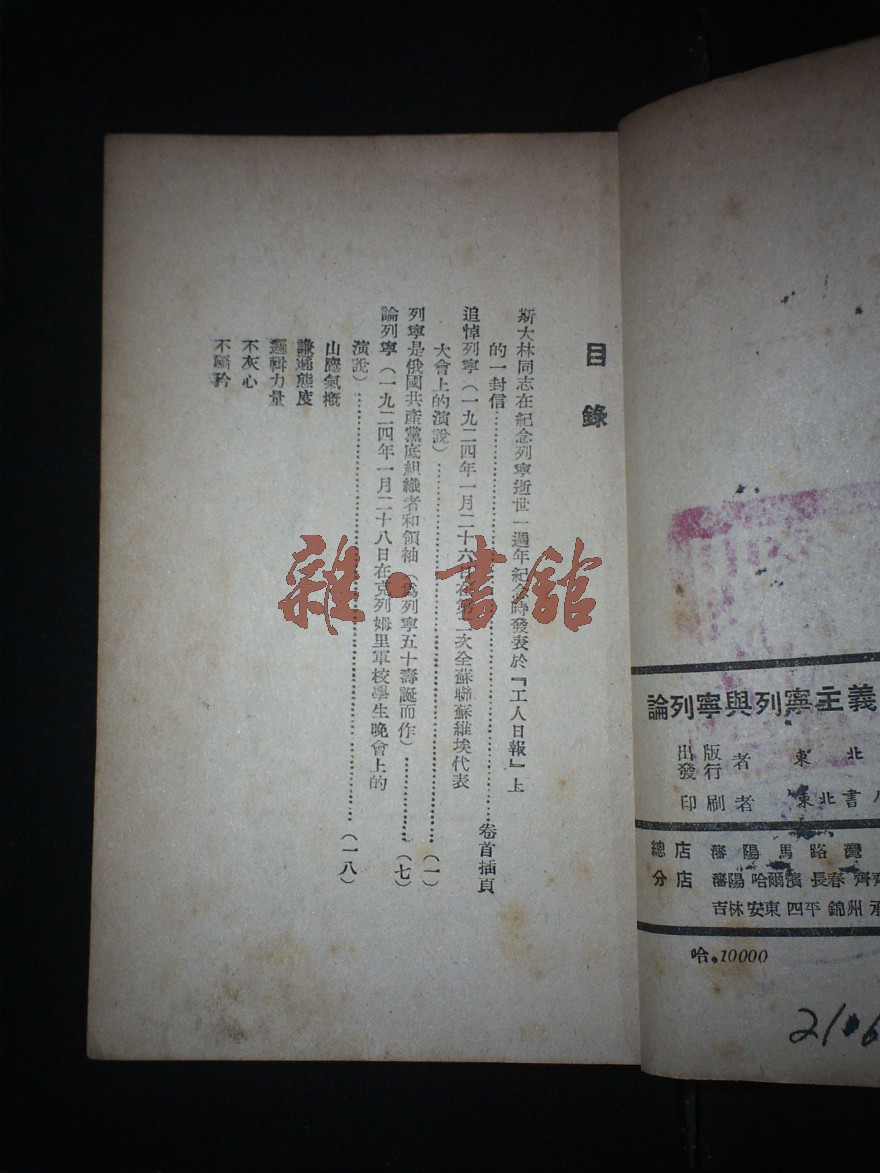 目錄
斯大林同志在紀念列寧逝世一週年紀念時發表於『工人日報』上
的一封信……卷首插頁
追悼列寧（一九二四年一月二十六日在第二次全蘇聯蘇維埃代表
大會上的演說）……（一）
列寧是俄國共產黨底組織者和領袖（為列寧五十壽誕而作）……（七）
論列寧（一九二四年一月二十八日在克列姆里軍校學生晚會上的
演說）……（一八）
山鷹氣概
謙遜態度
邏輯力量
不灰心
不驕矜
雜·書館
論列寧與列寧主義
出版
發行
者 東北
印刷者 東北書
總店 瀋陽馬路灣
分店 瀋陽 哈爾濱 長春 齊
吉林 安東 四平 錦州 承
哈。10000